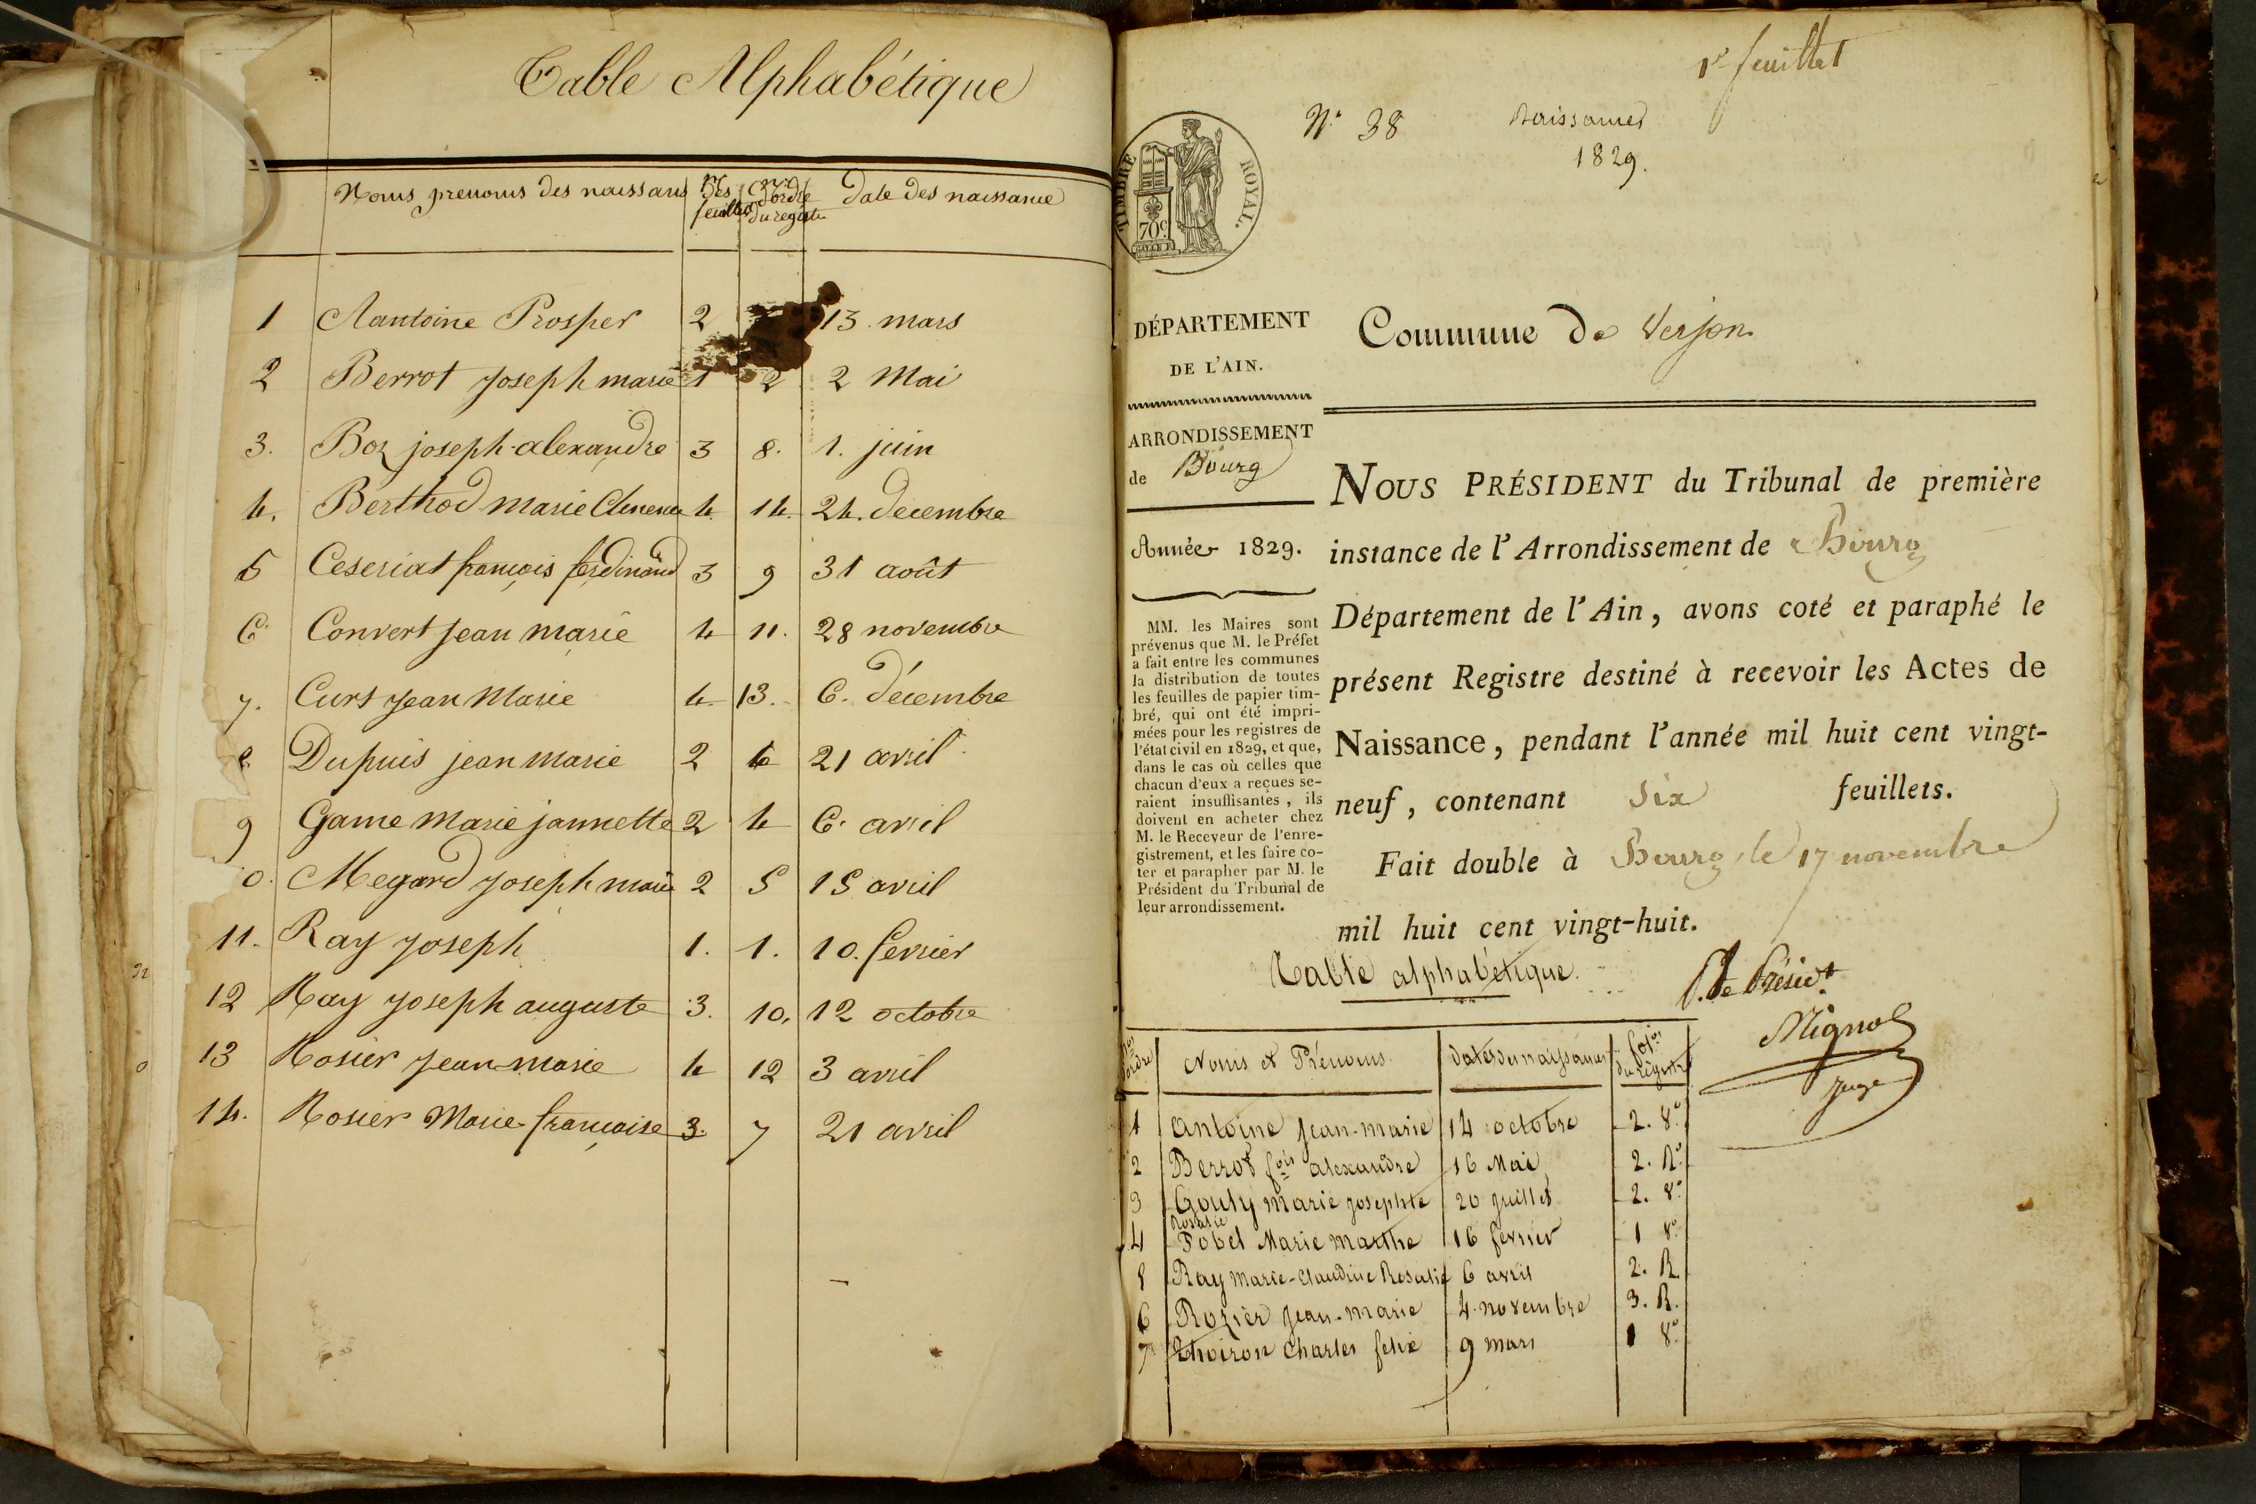 Table Alphabétique
Noms prenoms des naissans nos des feuillets nos d'ordre du registre date des naissance
1 Aantoine Prosper 2 13 mars
2 Berrot joseph marie 1 2 2 Mai
3. Boz joseph-alexandre 3 8. 1. juin
4. Berthod marie Clemence 4. 14. 24. decembre
5 Ceseriat françois ferdinand 3 9 31 août
6 Convert jean marie 4 11. 28 novembre
7. Curt jean Marie 4. 13. 6. décembre
8 Dupuis jean marie 2 6 21 avril
9 Game marie jannette 2 4 6. avril
0. Megard joseph marie 2 5 15 avril
11. Ray joseph 1. 1. 10. fevrier
12 Ray joseph auguste 3. 10. 12 octobre
13 Rosier jean-marie 4 12 3 avril
14. Rosier Marie-françoise 3. 7 21 avril
1r feuillet
N.o 38 Naissances
1829.
TIMBRE ROYAL.
70c
DÉPARTEMENT
DE L'AIN.
Commune de Verjon
ARRONDISSEMENT
de Bourg
Année 1829.
MM. les Maires sont
prévenus que M. le Préfet
a fait entre les communes
la distribution de toutes
les feuilles de papier tim-
bré, qui ont été impri-
mées pour les registres de
l'état civil en 1829, et que,
dans le cas où celles que
chacun d'eux a reçues se-
raient insuffisantes, ils
doivent en acheter chez
M. le Receveur de l'enre-
gistrement, et les faire co-
ter et parapher par M. le
Président du Tribunal de
leur arrondissement.
NOUS PRÉSIDENT du Tribunal de première
instance de l'Arrondissement de Bourg
Département de l'Ain, avons coté et paraphé le
présent Registre destiné à recevoir les Actes de
Naissance, pendant l'année mil huit cent vingt-
neuf, contenant six feuillets.
Fait double à Bourg, le 17 novembre
mil huit cent vingt-huit.
Table alphabétique.
P. le Présidt
Mignot
Juge
nos d'ordre Noms et Prénoms dates des naissances fos du registre
1 Antoine jean-marie 14 octobre 2. 8o
2 Berrot fois alexandre 16 Mai 2. Ro
3 Gouly marie josephte 20 juillet 2. 8o
Rosalie
4 Fobel Marie Marthe 16 fevrier 1 8o
5 Ray Marie-Claudine Rosalie 6 avril 2. R
6 Rozier jean-marie 4. novembre 3. R.
7 Thoiron Charles felix 9 mars 1 8o